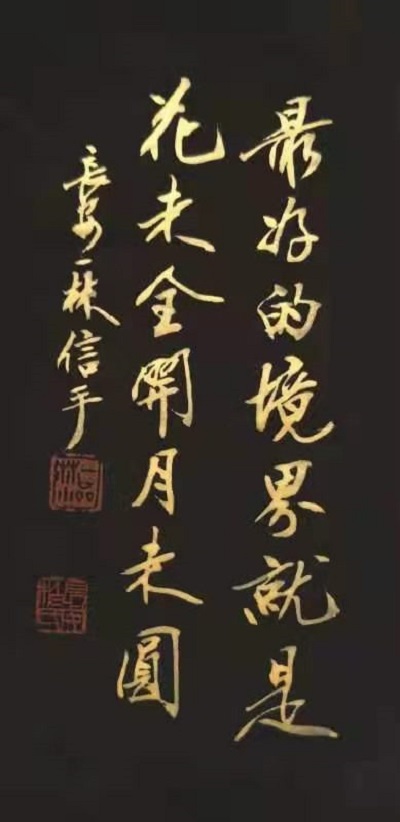 最好的境界就是
花未全開月未圓
長安一林信手